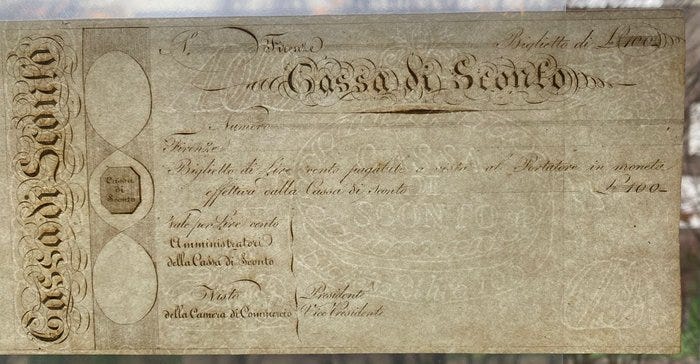 Cassa di Sconto
Cassa
di
Sconto
N.° Firenze Biglietto di £ 100
Cassa di Sconto
Numero
Firenze
Biglietto di Lire cento pagabili a vista al Portatore in moneta
effettiva dalla Cassa di Sconto £ 100
Vale per Lire cento
Amministratori
della Cassa di Sconto
Visto Presidente
della Camera di Commercio Vice Presidente